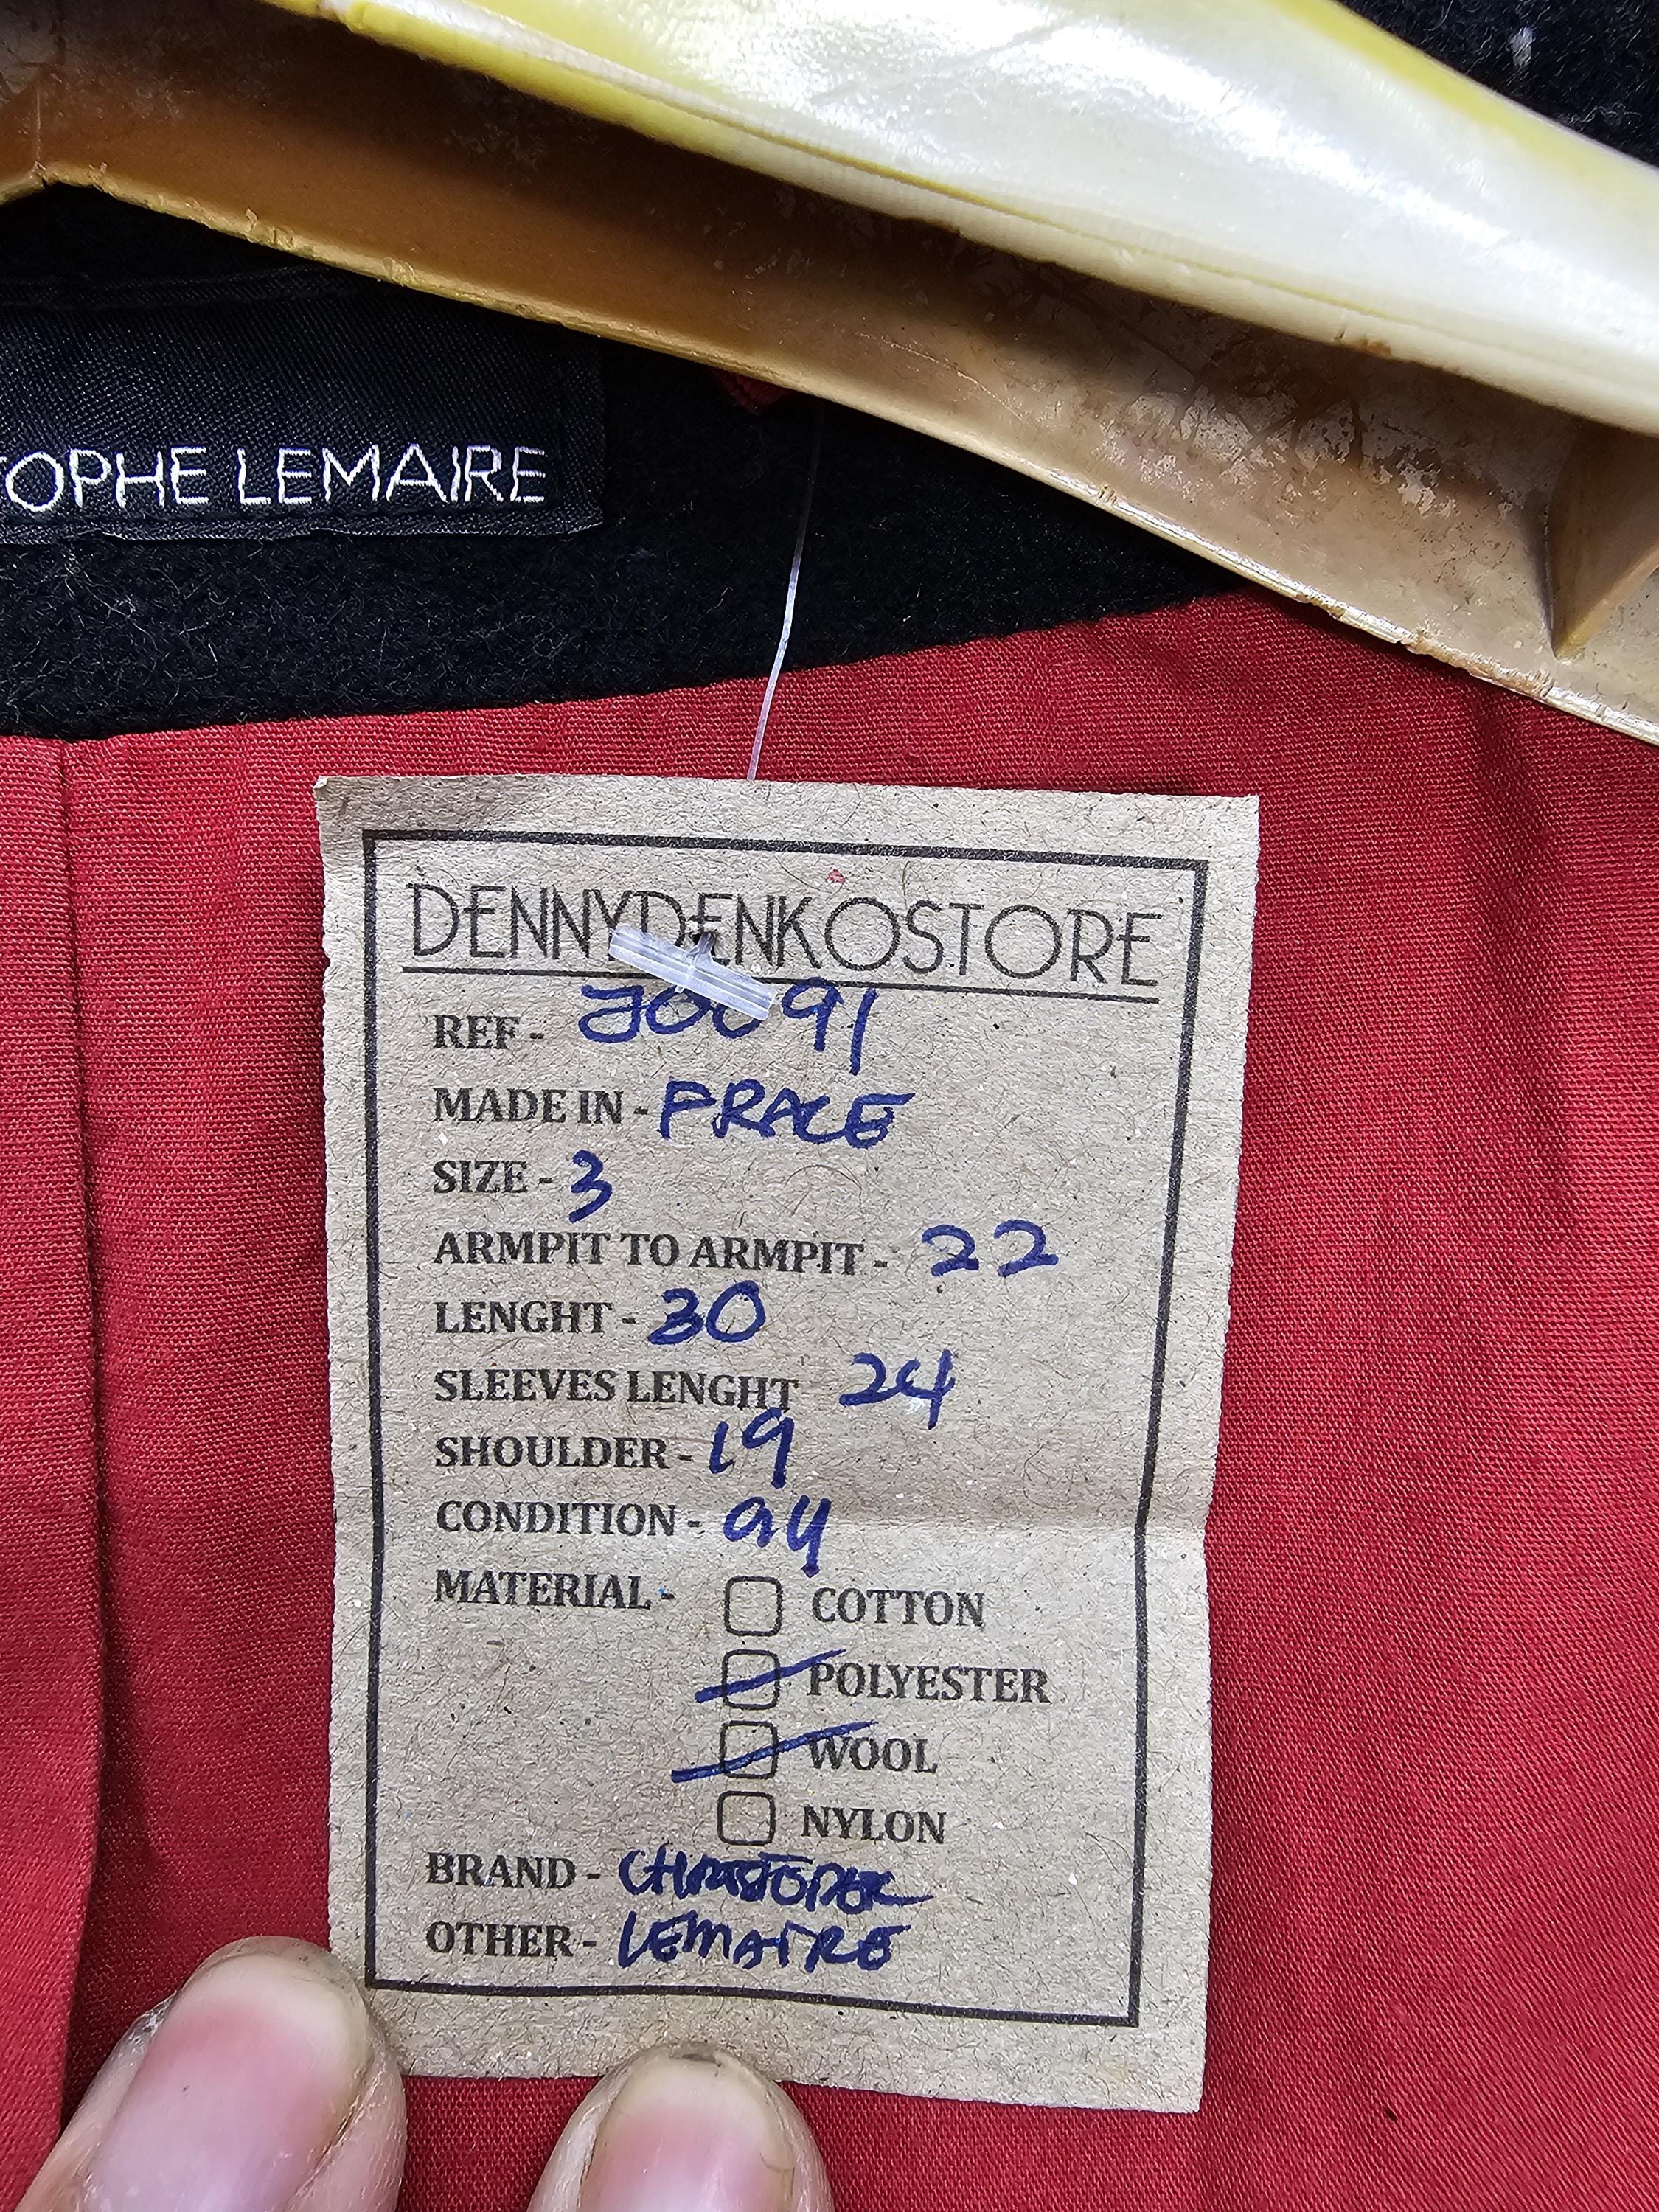 TOPHE LEMAIRE
DENNYDENKOSTORE
REF - J0091
MADE IN - FRACE
SIZE - 3
ARMPIT TO ARMPIT - 22
LENGHT - 30
SLEEVES LENGHT 24
SHOULDER - 19
CONDITION - 94
MATERIAL - COTTON
POLYESTER
WOOL
NYLON
BRAND - CHRISTOPER
OTHER - LEMAIRE